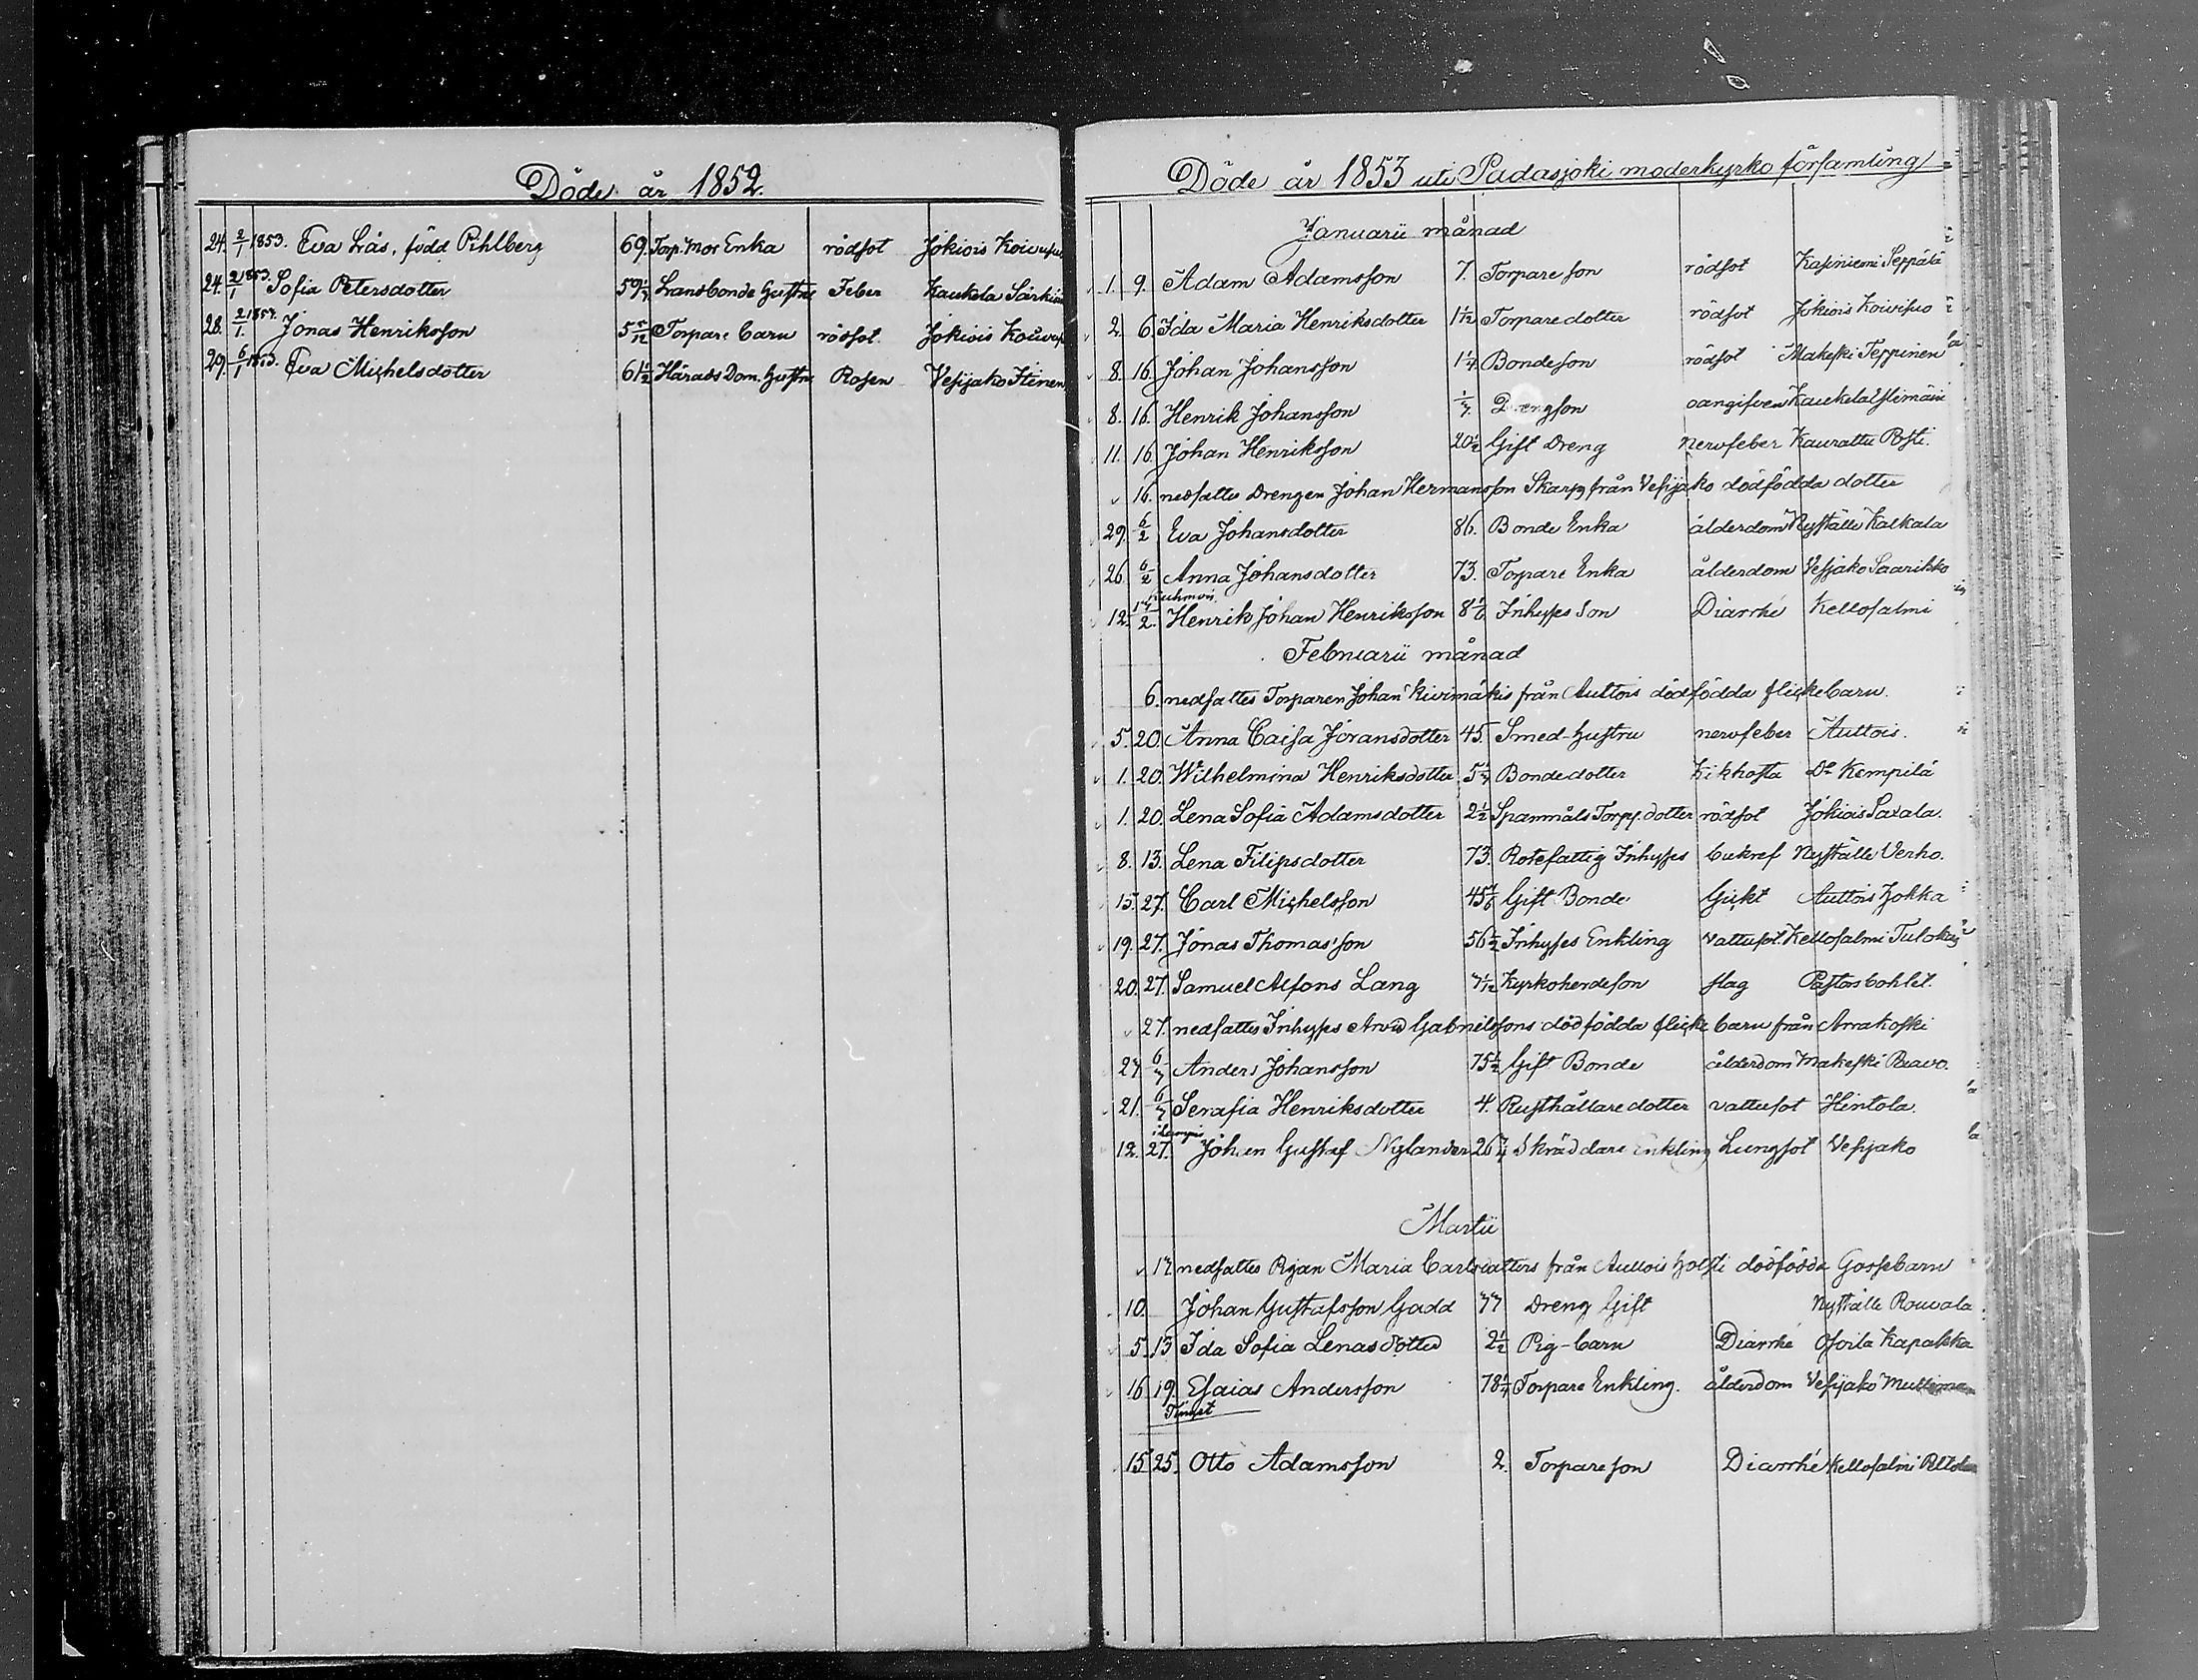 Döde år 1852.
24. 2/1 1853. Eva Lrås, född Pihlberg 69. Torp. mor Enka rödsot Jokiois
24. 2/1 1853. Sofia Petersdotter 59 Landbonde Hustru Feber Kaukela
28. 2/1. Jonas Henriksson 5 Torpare barn rödsot. Jokiois
29. 6/1 1853. Eva Michelsdotter 61½ Härads Dom. Hustru Rosen Vesijako Itinen
Döde år 1853 uti Padasjoki moderkyrko församling
Januarii månad
1. 9. Adam Adamsson 7. Torpare son rödsot Kasiniemi Seppälä
2. 6. Ida Maria Henriksdotter 1½ Torpare dotter rödsot Jokiois Koivisuo
8. 16. Johan Johansson 1¼ Bondeson rödsot Makeski Teppinen
8. 16. Henrik Johansson Drengson oangifven Kaukela
11. 16. Johan Henriksson 20½ Gift Dreng Nervfeber Kaurattu Rosti.
16. nedsattes Drengen Johan Hermansson Skarps från Vesijako dödfödda dotter
29. 6/2 Eva Johansdotter 86. Bonde Enka ålderdom Nyställe Kalkala
26. 6/2 Anna Johansdotter 73. Torpare Enka ålderdom Vesijako Saarikko
12. 2. Henrik Johan Henriksson 8 1/6 Inhyses Son Diarrhé Kellosalmi
Februarii månad
6. nedsattes Torparen Johan Kivimäkis från Auttois dödfödda flickebarn.
5. 20. Anna Caisa Joransdotter 45. Smed-hustru nervfeber Auttois.
1. 20. Wilhelmina Henriksdotter 5¼ Bondedotter Kikhosta Do Kempilä
1. 20. Lena Sofia Adamsdotter 2½ Spanmåls Torpp. dotter rödsot Jokiois Saxala.
8. 13. Lena Filipsdotter 73. Rotefattig Inhyses bukref Nyställe Verho.
15. 27. Carl Michelsson 45 Gift Bonde Gickt Auttois Jokka
19. 27. Jonas Thomas'son 56½ Inhyses Enkling vattusot. Kellosalmi
20. 27. Samuel Alfons Lang Kyrkoherdeson slag Pastors bohlet.
27. nedsattes Inhyses Arvid Gabrielssons dödfödda flicke barn från Arrakoski
27 6/ Anders Johansson 75½ Gift Bonde ålderdom Makeski Paavo.
21. 6/ Serafia Henriksdotter 4. Rusthållare dotter vattusot Hintola.
12. 27. Johan Gustaf Nylander 26 Skräddare Enkling Lungsot Vesijako
Martii
17. nedsattes Pigan Maria Carlsdotters från Auttois Holsti dödfödda Gossebarn
10. Johan Gustafsson Gadd 77 Dreng Gift Nyställe Rouvala
5. 13 Ida Sofia Lenasdotter 2½ Pig-barn Diarrhé Osoila Kapakka
16 19. Esaias Andersson 78 Torpare Enkling. ålderdom Vesijako
Tinget
15 25. Otto Adamsson 2. Torpare son Diarrhé Kellosalmi